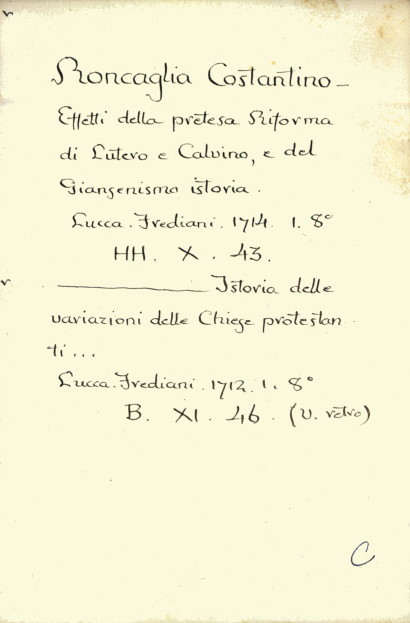 Roncaglia Costantino –
Effetti della pretesa Riforma
di Lutero e Calvino, e del
Giansenismo istoria.
Lucca. Frediani. 1714. 1. 8°
HH. X. 43.
———— Istoria delle
variazioni delle Chiese protestan
ti...
Lucca. Frediani. 1712. 1. 8°
B. XI. 46. (V. retro)
C